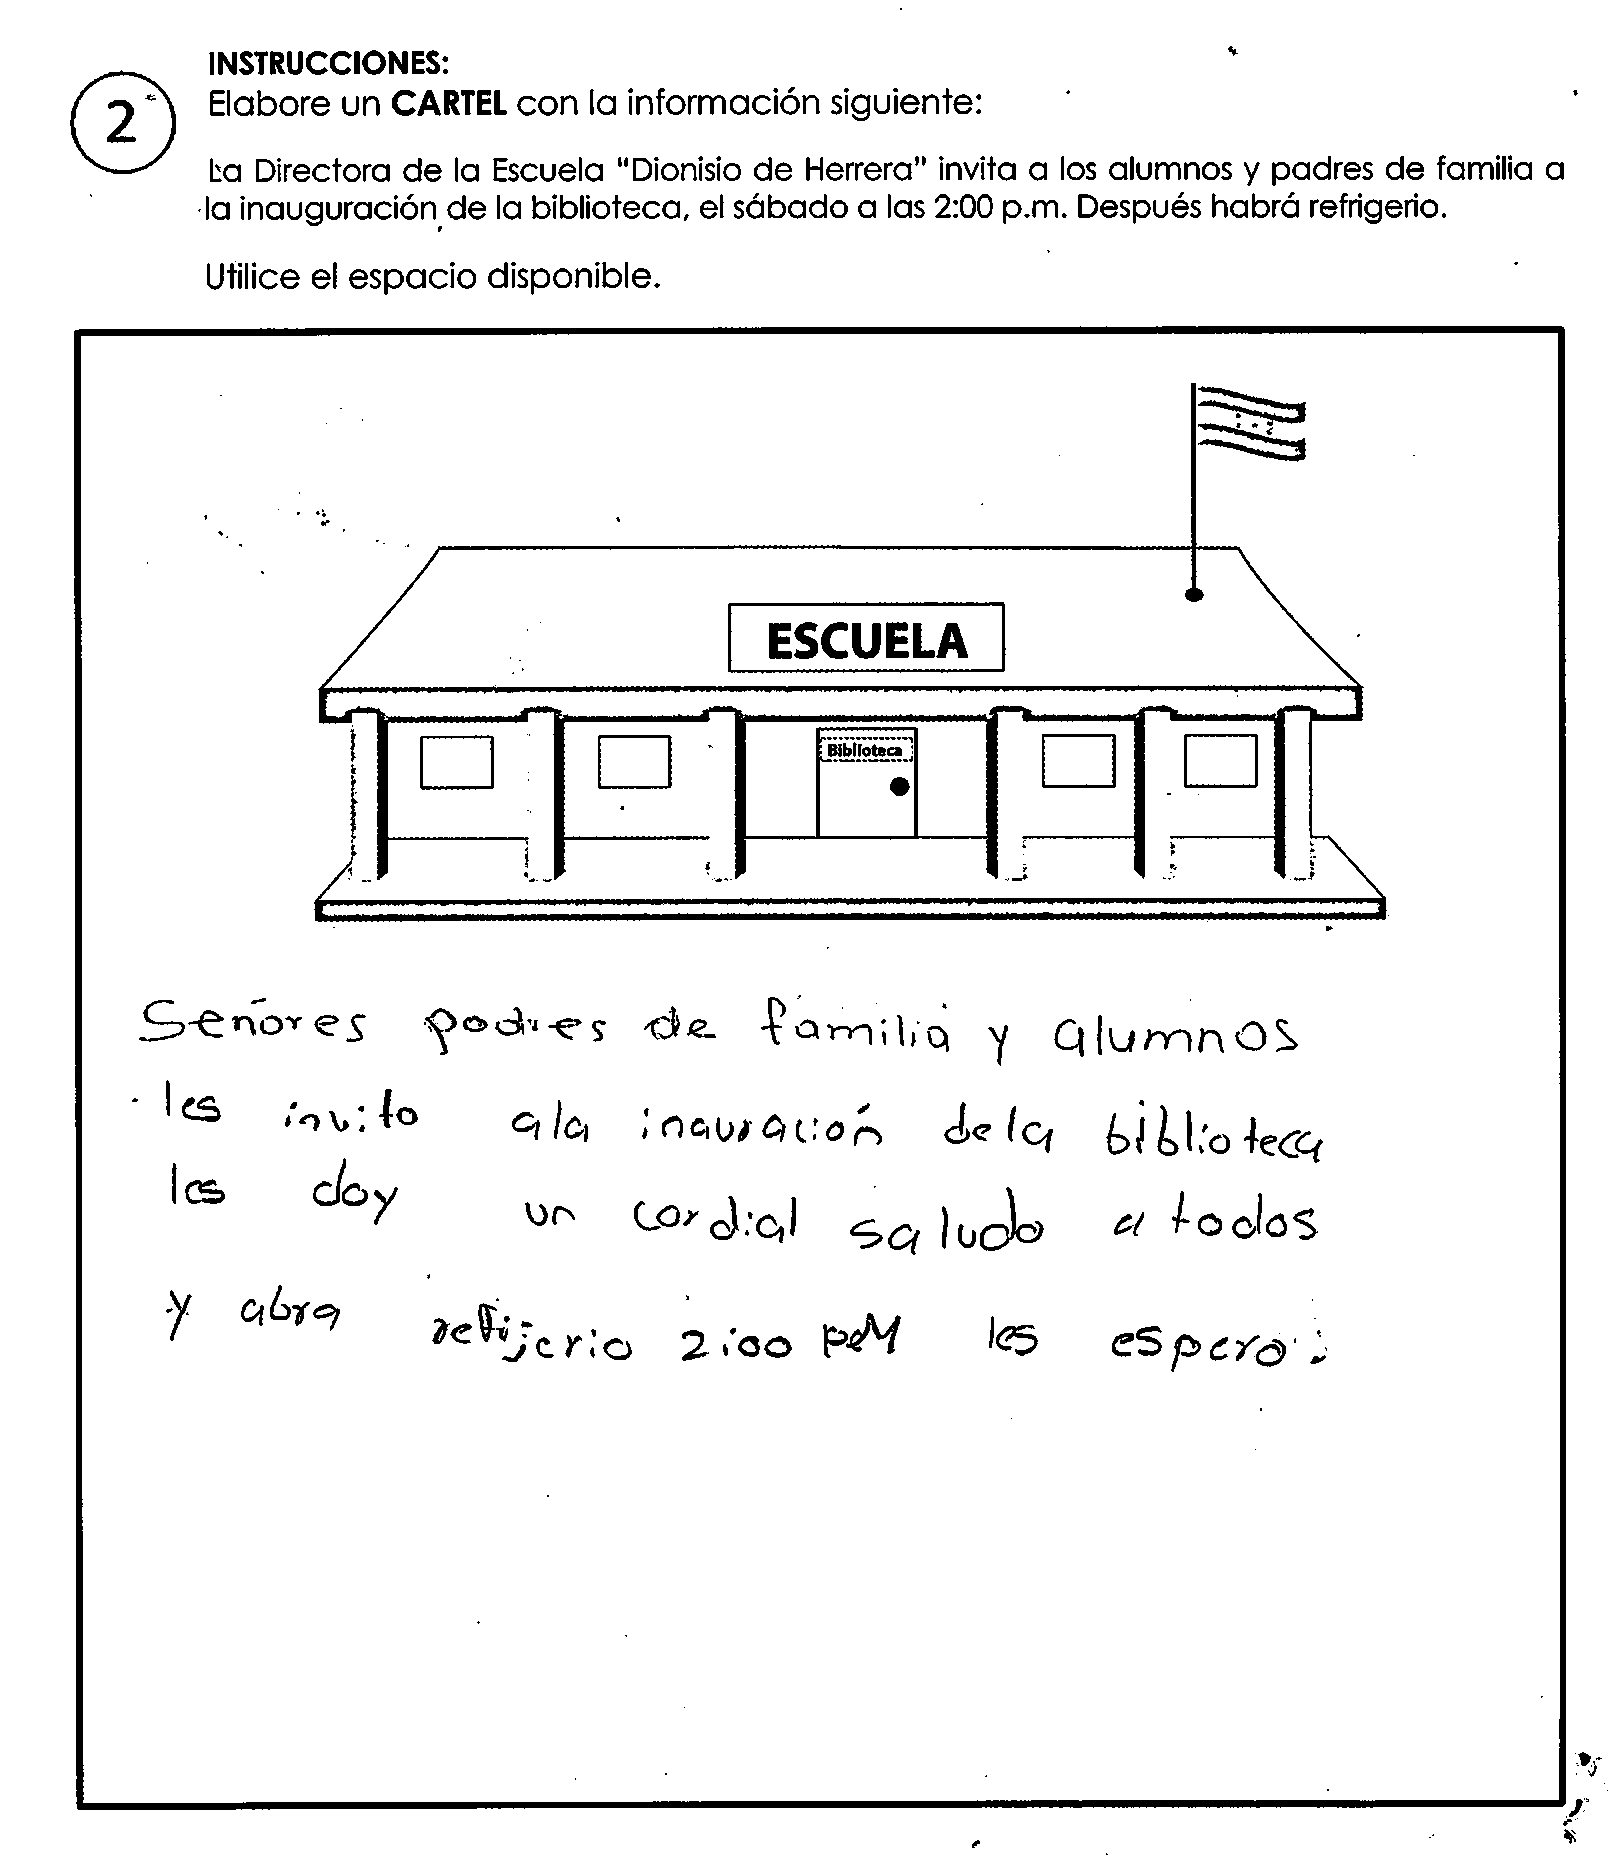 INSTRUCCIONES:
2
Elabore un CARTEL con la información siguiente:
La Directora de la Escuela "Dionisio de Herrera" invita a los alumnos y padres de familia a
la inauguración de la biblioteca, el sábado a las 2:00 p.m. Después habrá refrigerio.
Utilice el espacio disponible.
ESCUELA
Biblioteca
Señores padres de familia y alumnos
les invito ala inauración dela biblioteca
les doy un cordial saludo a todos
y abra refijerio 2:00 PM les espero.